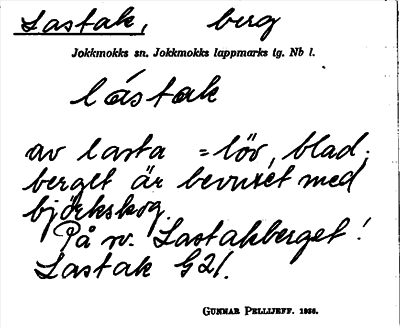 Lastak, berg
Jokkmokks sn. Jokkmokks lappmarks tg. Nb l.
lástak
av lasta = löv, blad;
berget är bevuxet med
björkskog.
På sv. Lastakberget!
Lastak G2l.
GUNNAR PELLIJEFF. 1956.